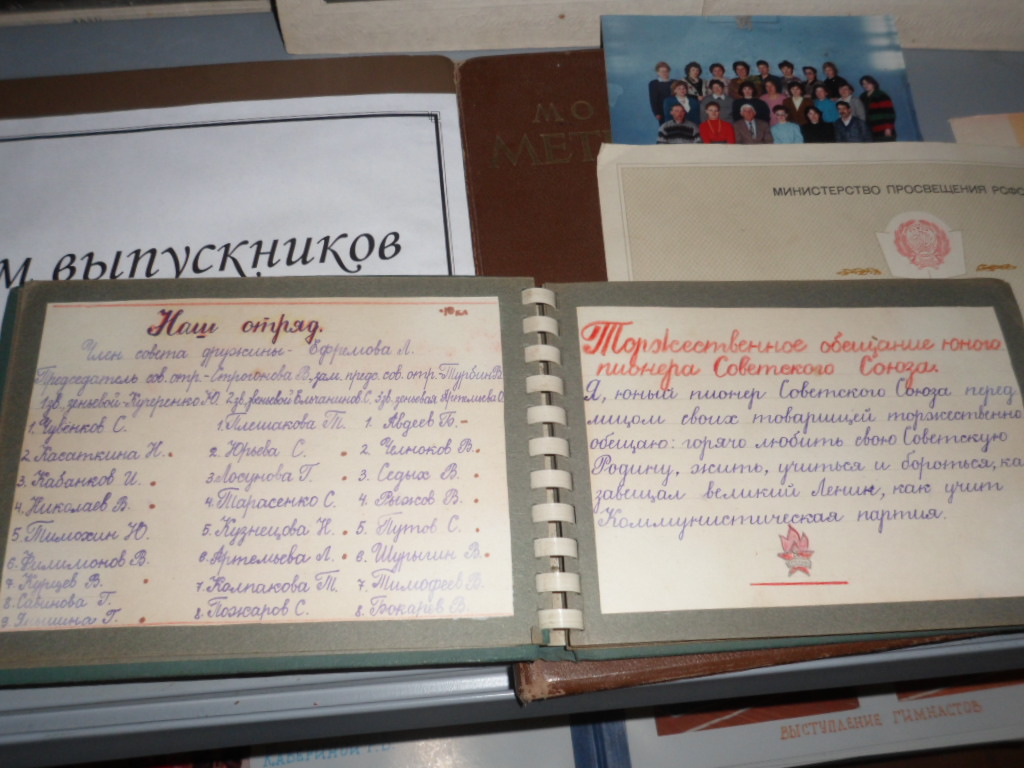 МО
МЕТ
МИНИСТЕРСТВО ПРОСВЕЩЕНИЯ РСФС
м выпускников
Наш отряд.
Член совета дружины - Ефремова Л.
Председатель сов. отр. - Строгонова В, зам. предс. сов. отр. - Турбин В
1 зв. зеньевой - Кучеренко Ю. 2 зв. звеньевой Ельчанинов С, 3 зв. зеньевая Артемьева О
1. Чувенков С.
2. Касаткина Н.
3. Кабанков И.
4. Николаев В.
5. Тимохин Ю.
6. Филимонов В.
7. Курцев В.
8. Савинова Г.
9. Г.
1. Плешакова Т.
2. Юрьева С.
3. Лосунова Г.
4. Тарасенко С.
5. Кузнецова Н.
6. Артемьева Л.
7. Колпакова Т.
8. Пожаров С.
1. Авдеев Б. -
2. Челноков В.
3. Седых В.
4. В.
5. Путов С.
6. Шурыгин В.
7. Тимофеев В.
8. Бокарёв В.
Торжественное обещание юного
пионера Советского Союза.
Я, юный пионер Советского Союза перед
лицом своих товарищей торжественно
обещаю: горячо любить свою Советскую
Родину, жить, учиться и бороться, ка
завещал великий Ленин, как учит
Коммунистическая партия.
КАБЕРИНОЙ Г.В.
ВЫСТУПЛЕНИЕ ГИМНАСТОВ